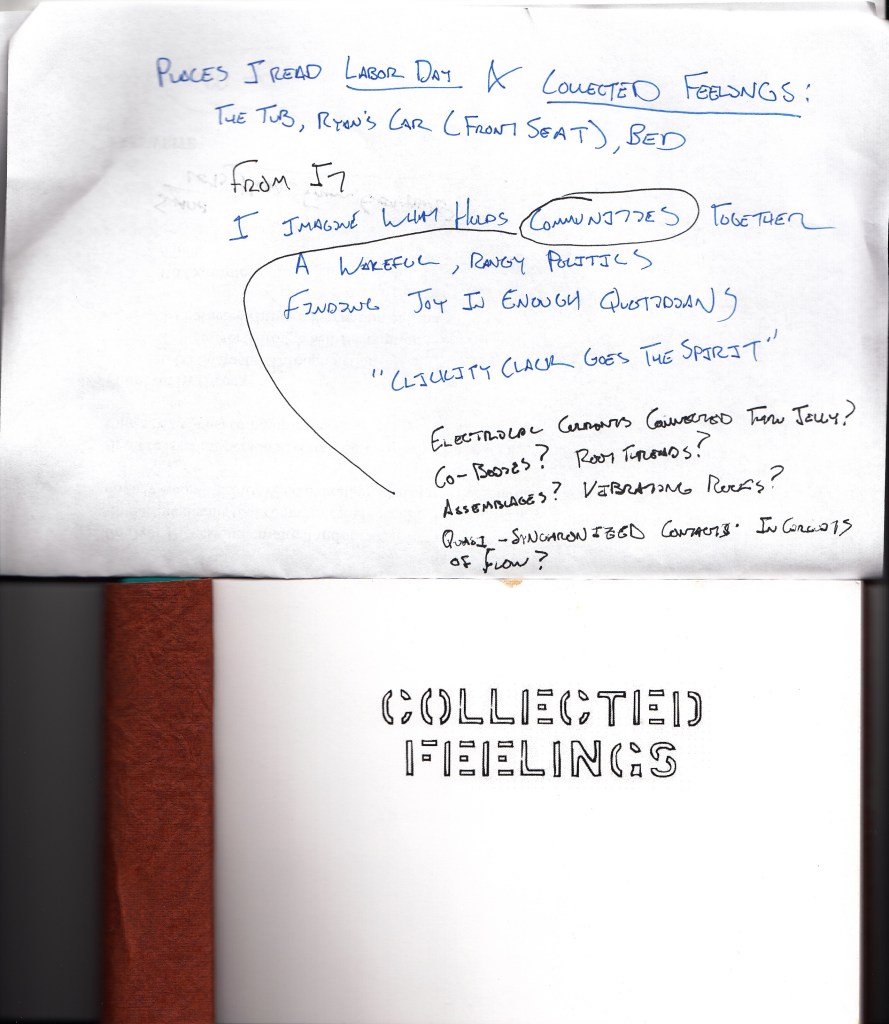 PLACES I READ LABOR DAY & COLLECTED FEELINGS:
THE TUB, RYAN'S CAR (FRONT SEAT), BED
FROM IT
I IMAGINE WHAT HOLDS COMMUNITIES TOGETHER
A WAKEFUL, RANGY POLITICS
FINDING JOY IN ENOUGH QUOTIDIANS
"CLICKITY CLACK GOES THE SPIRIT"
ELECTRICAL CURRENTS CONNECTED THRU JELLY?
CO-BODIES? ROOT THREADS?
ASSEMBLAGES? VIBRATING ROCKS?
QUASI-SYNCHRONIZED CONTACTS. IN CIRCUITS
OF FLOW?
COLLECTED
FEELINGS